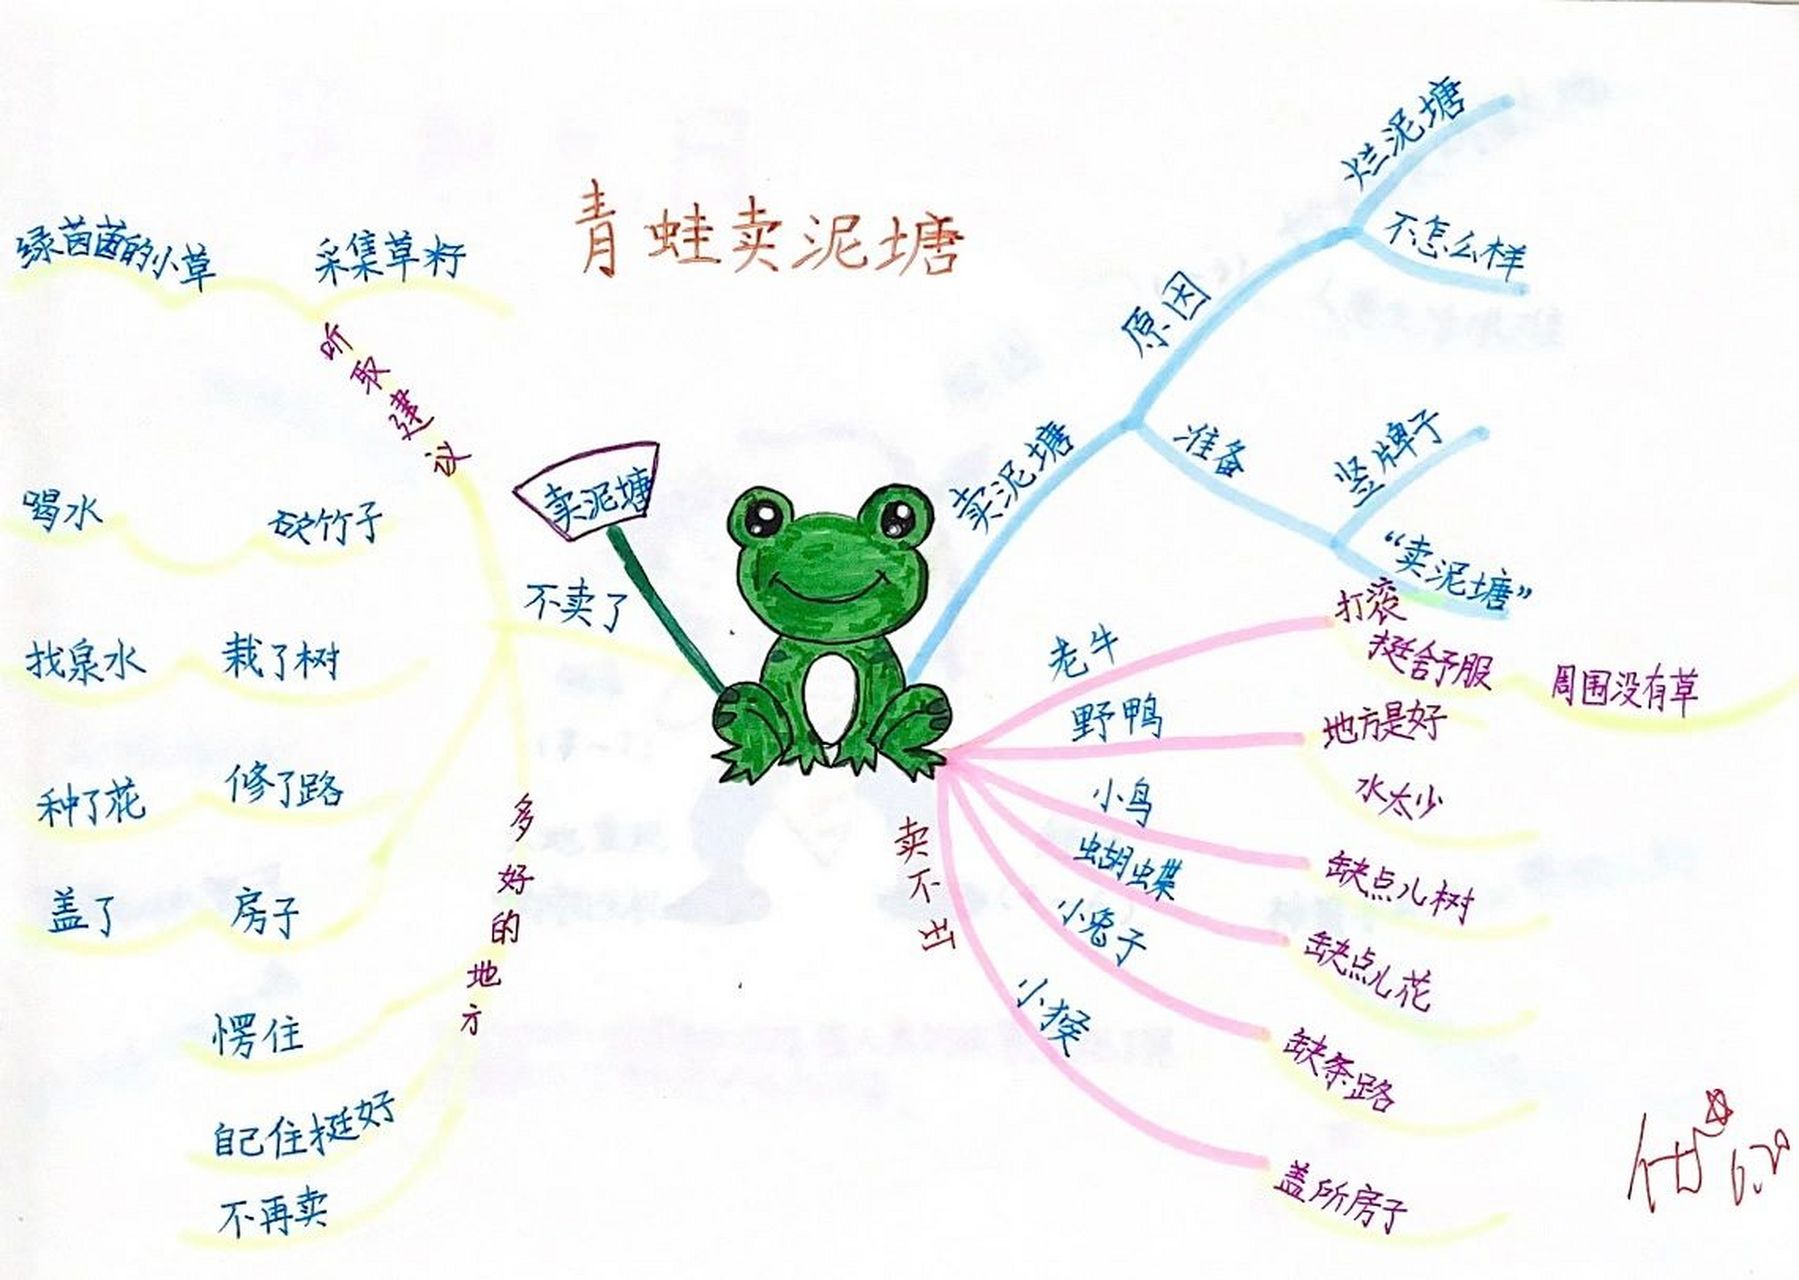 青蛙卖泥塘
卖泥塘
卖泥塘
原因
烂泥塘
不怎么样
准备
竖牌子
“卖泥塘”
卖不出
老牛
打滚
挺舒服
周围没有草
野鸭
地方是好
水太少
小鸟
缺点儿树
蝴蝶
缺点儿花
小兔子
缺条路
小猴
盖所房子
不卖了
听取建议
采集草籽
绿茵茵的小草
砍竹子
喝水
栽了树
找泉水
修了路
种了花
房子
盖了
多好的地方
愣住
自己住挺好
不再卖
6.20